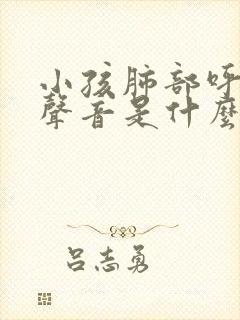 小孩肺部呼
聲音是什麼
呂志勇